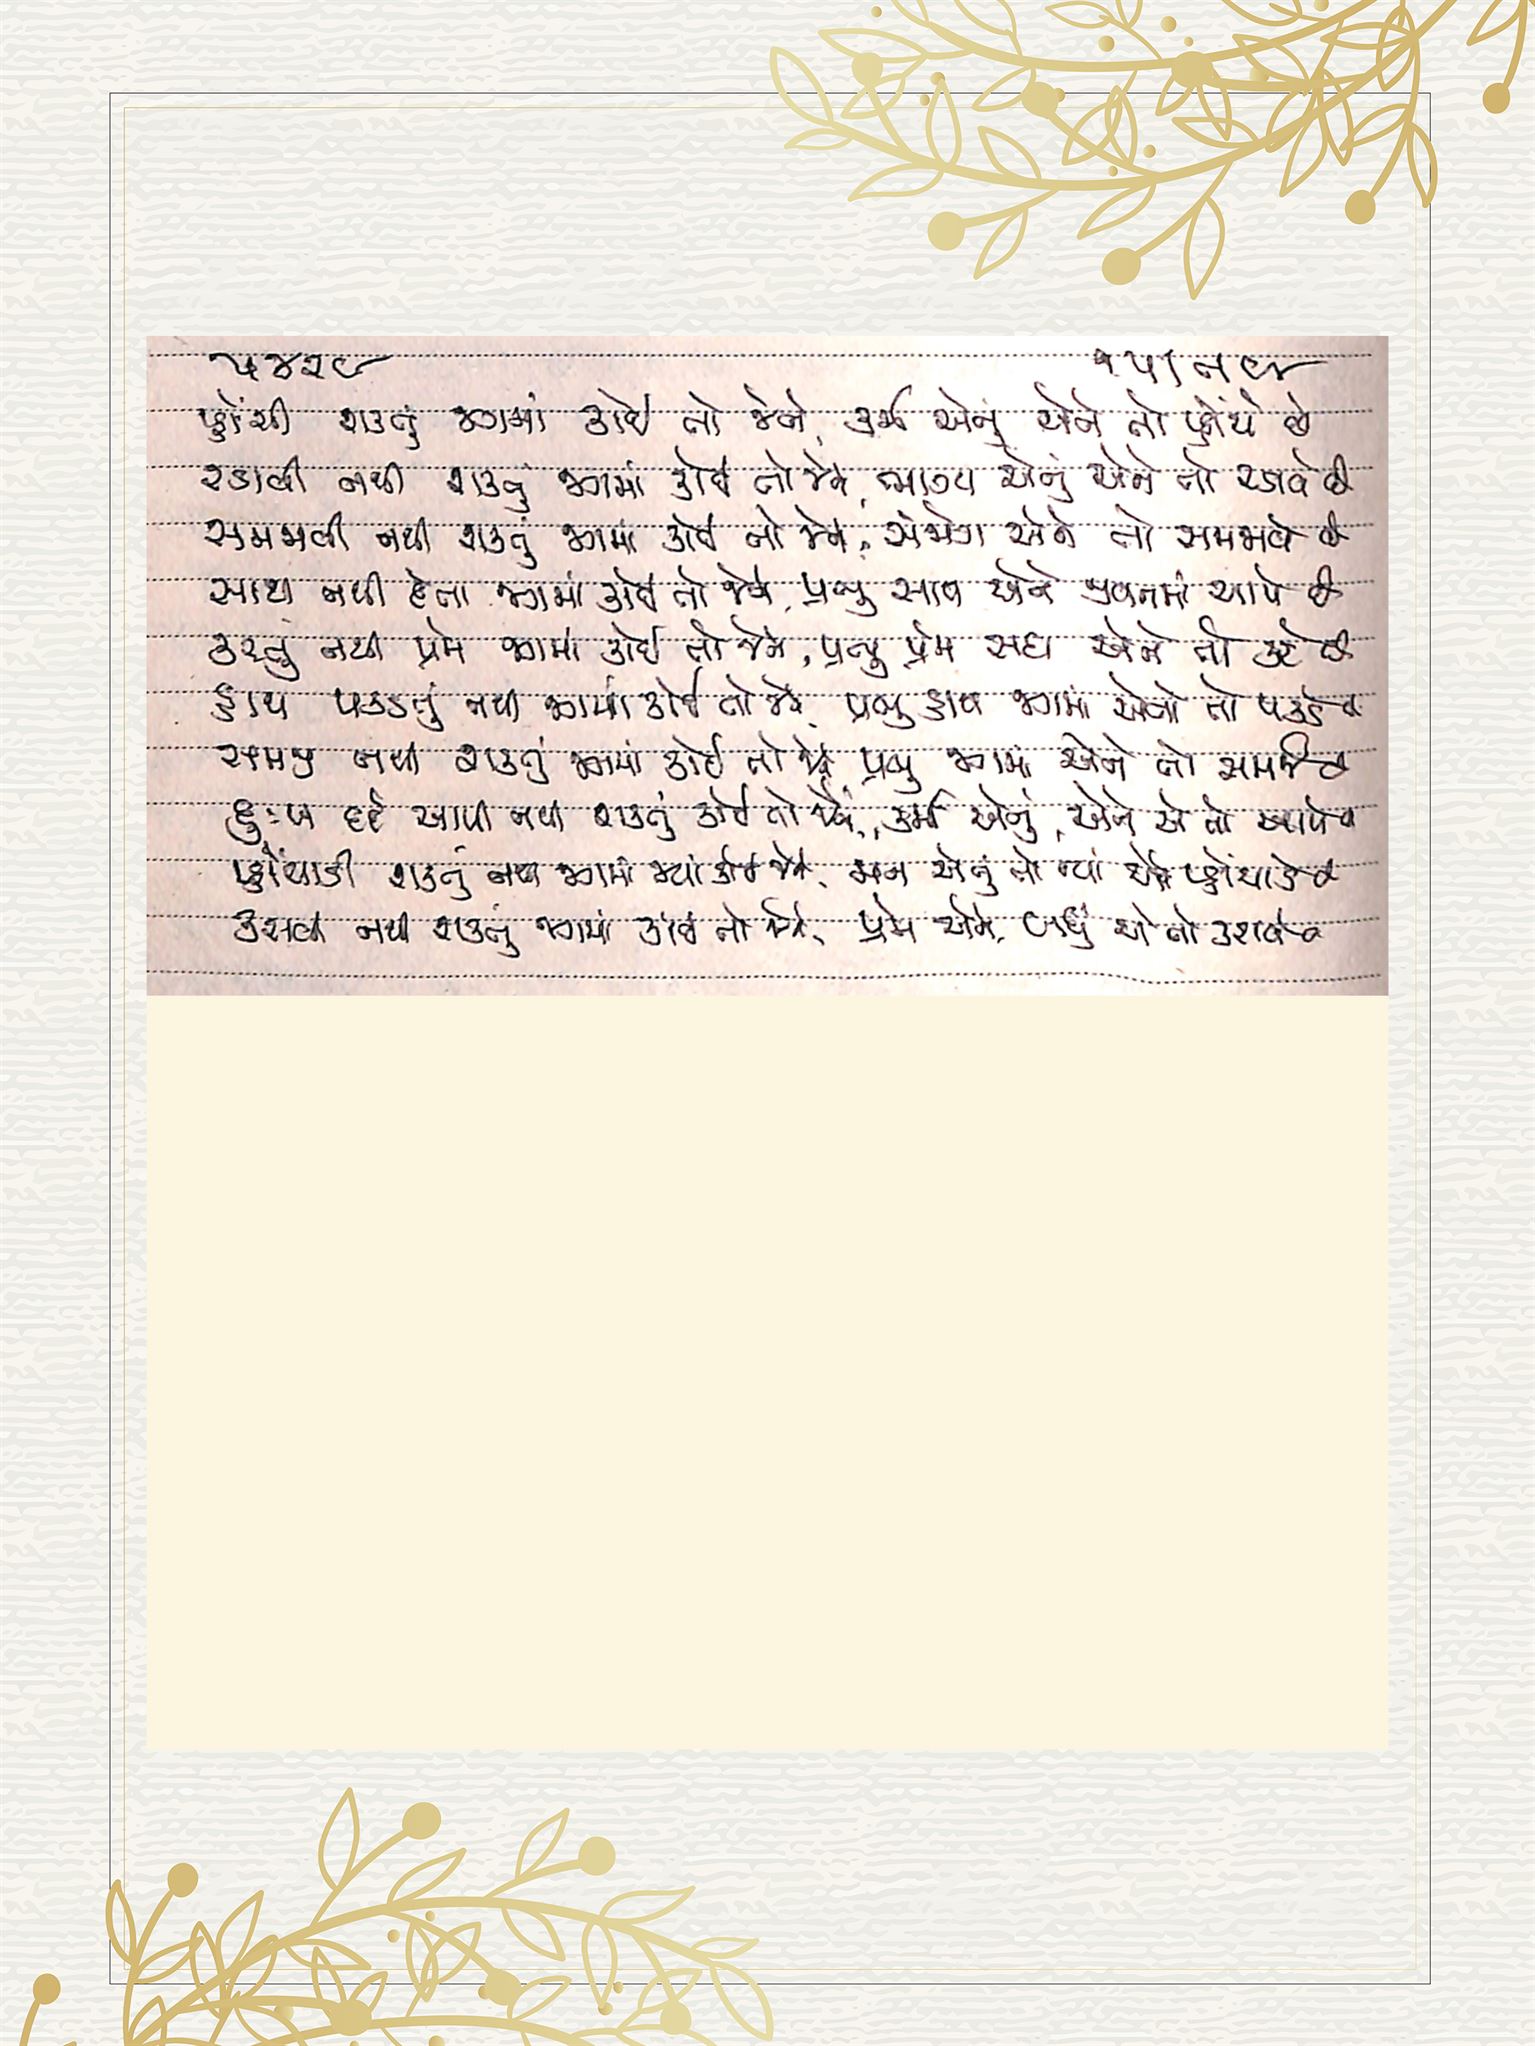 ૫૪૨૯
પ્હોંચી શકતું જગમાં કોઈ તો જેને, કર્મ એનું એને તો પ્હોંચે છે
રડાવી નથી શકતું જગમાં કોઈ તો જેને, ભાગ્ય એનું એને તો રડાવે છે
સમજાવી નથી શકતું જગમાં કોઈ તો જેને, સંજોગ એને તો સમજાવે છે
સાથ નથી દેતા જગમાં કોઈ તો જેને, પ્રભુ સાથ એને જીવનમાં આપે છે
કરતું નથી પ્રેમ જગમાં કોઈ તો જેને, પ્રભુ પ્રેમ સદા એને તો કરે છે
હાથ પકડતું નથી જગમાં કોઈ તો જેને, પ્રભુ હાથ જગમાં એનો તો પકડે છે
સમજી નથી શકતું જગમાં કોઈ તો જેને, પ્રભુ જગમાં એને તો સમજે છે
દુઃખ દર્દ આપી નથી શકતું કોઈ તો જેને, કર્મો એનું, એને એ તો આપે છે
પ્હોંચાડી શકતું નથી જગમાં જ્યાં કોઈ જેને, મન એનું તો ત્યાં એને પ્હોંચાડે છે
કરાવી નથી શકતું જગમાં કોઈ તો જેને, પ્રેમ એને, બધું એ તો કરાવે છે